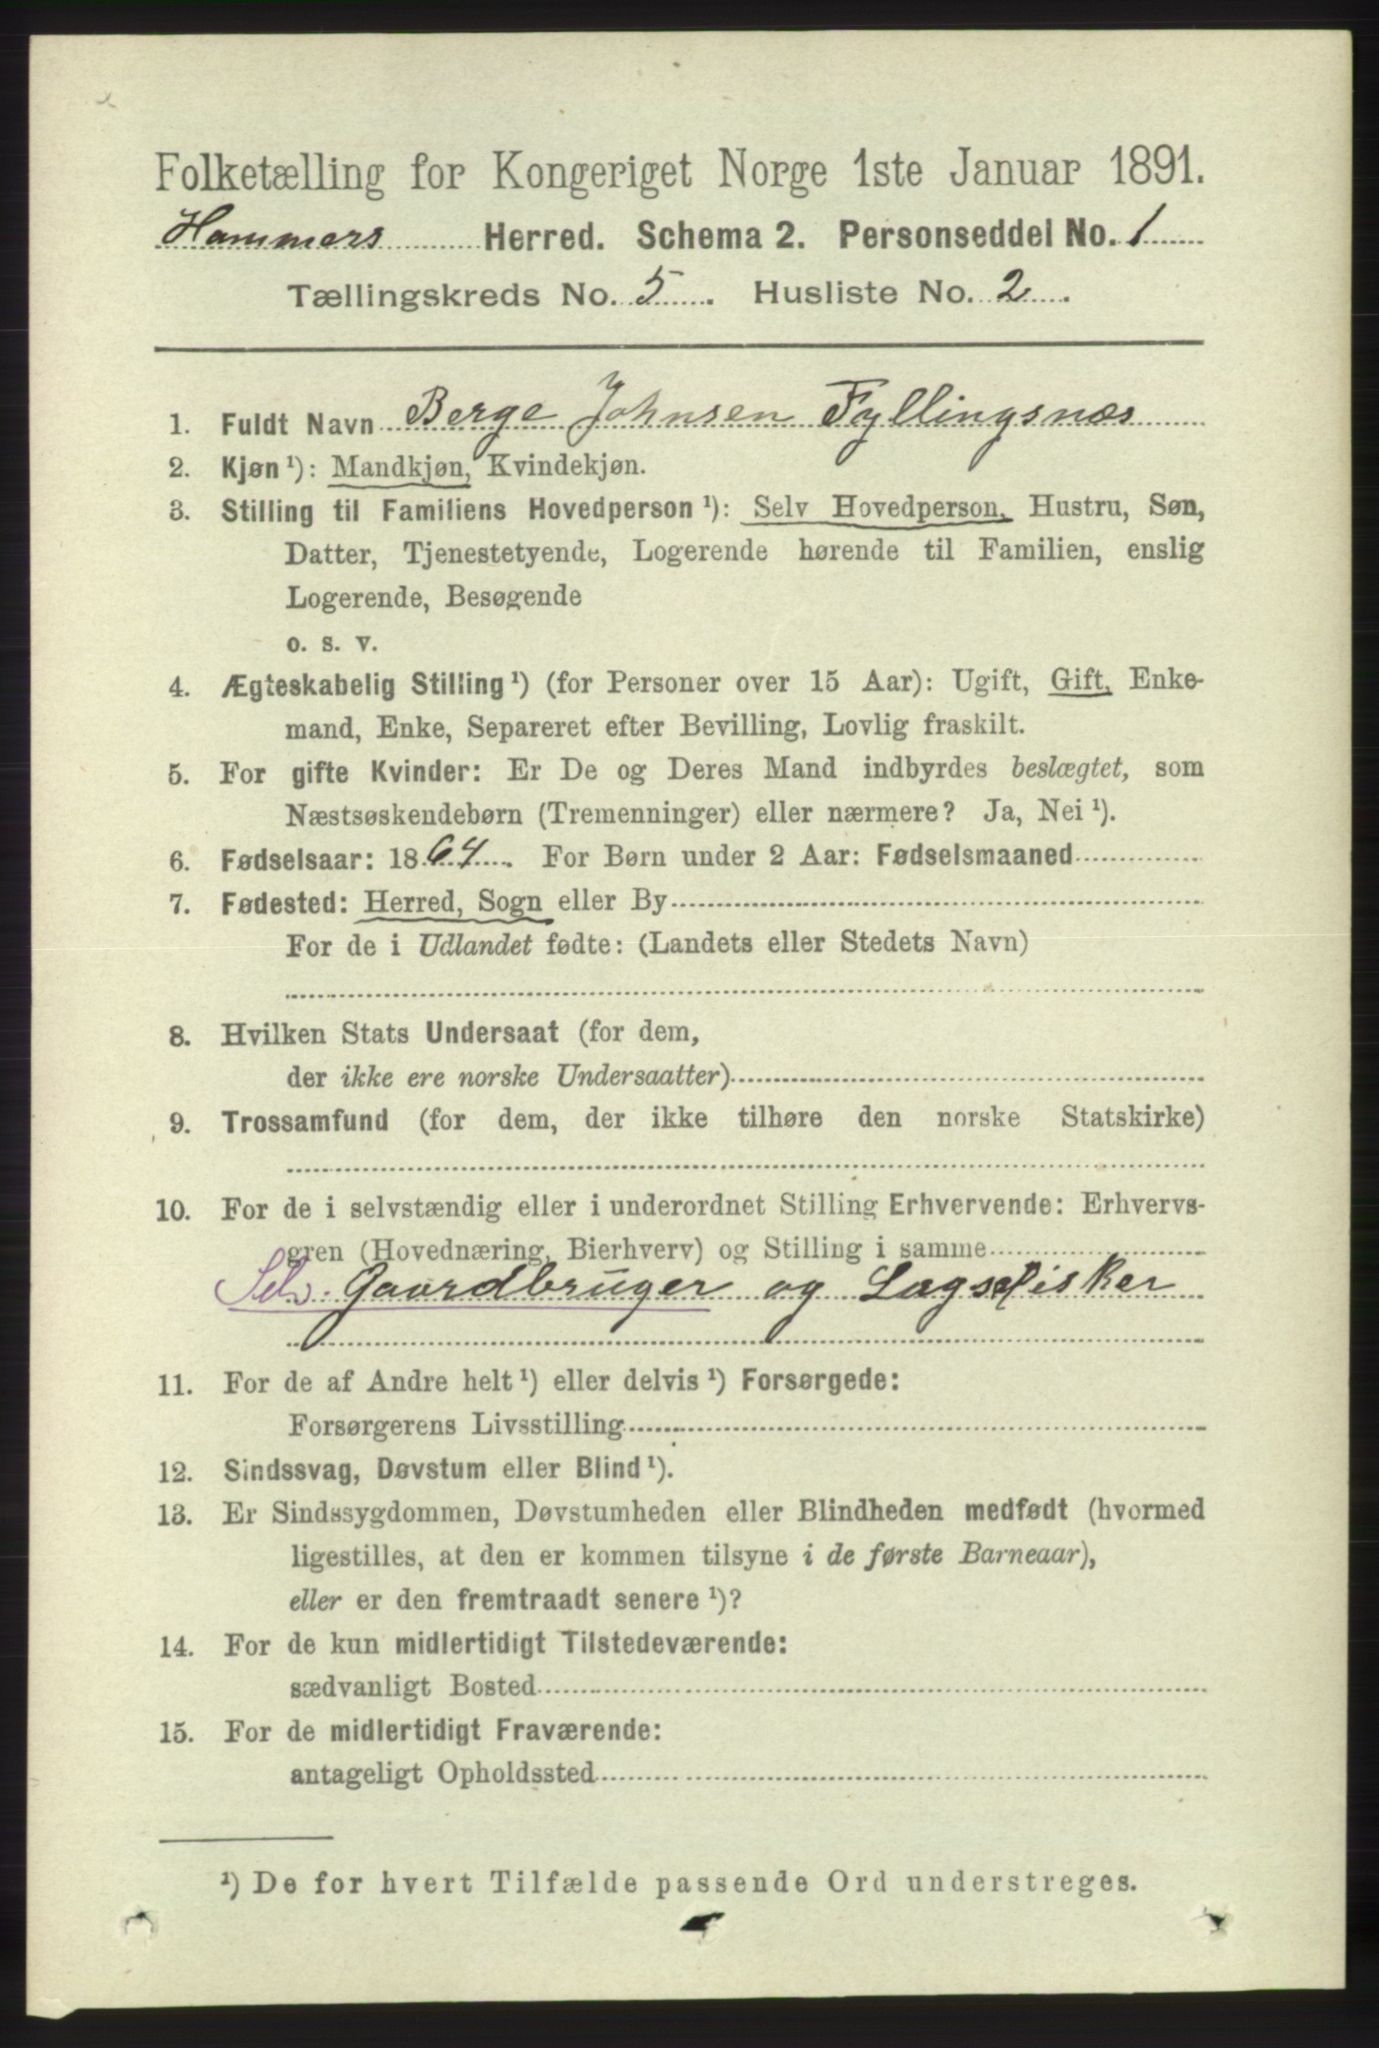 Folketælling for Kongeriget Norge 1ste Januar 1891.
Hammers Herred. Schema 2. Personseddel No. 1
Tællingskreds No. 5. Husliste No. 2.
1. Fuldt Navn Berge Johnsen Fyllingsnæs
2. Kjøn ¹): Mandkjøn, Kvindekjøn.
3. Stilling til Familiens Hovedperson ¹): Selv Hovedperson, Hustru, Søn,
Datter, Tjenestetyende, Logerende hørende til Familien, enslig
Logerende, Besøgende
o. s. v.
4. Ægteskabelig Stilling ¹) (for Personer over 15 Aar): Ugift, Gift, Enke-
mand, Enke, Separeret efter Bevilling, Lovlig fraskilt.
5. For gifte Kvinder: Er De og Deres Mand indbyrdes beslægtet, som
Næstsøskendebørn (Tremenninger) eller nærmere? Ja, Nei ¹).
6. Fødselsaar: 1864. For Børn under 2 Aar: Fødselsmaaned
7. Fødested: Herred, Sogn eller By
For de i Udlandet fødte: (Landets eller Stedets Navn)
8. Hvilken Stats Undersaat (for dem,
der ikke ere norske Undersaatter)
9. Trossamfund (for dem, der ikke tilhøre den norske Statskirke)
10. For de i selvstændig eller i underordnet Stilling Erhvervende: Erhvervs-
gren (Hovednæring, Bierhverv) og Stilling i samme
Selv. Gaardbruger og Lagsfisker
11. For de af Andre helt ¹) eller delvis ¹) Forsørgede:
Forsørgerens Livsstilling
12. Sindssvag, Døvstum eller Blind ¹).
13. Er Sindssygdommen, Døvstumheden eller Blindheden medfødt (hvormed
ligestilles, at den er kommen tilsyne i de første Barneaar),
eller er den fremtraadt senere ¹)?
14. For de kun midlertidigt Tilstedeværende:
sædvanligt Bosted
15. For de midlertidigt Fraværende:
antageligt Opholdssted
¹) De for hvert Tilfælde passende Ord understreges.